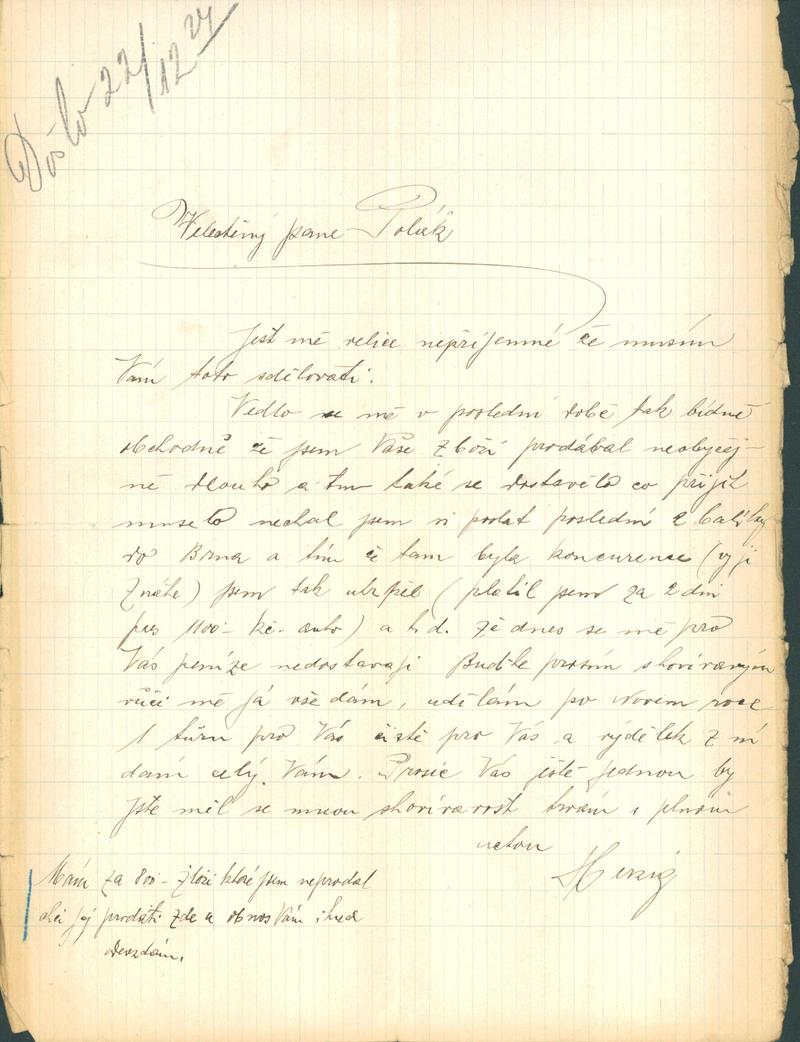 Došlo 22/12 24
Velectěný pane Polák
Jest mě velice nepříjemné že musím
Vám toto sdělovati.
Vedlo se mě v poslední době tak bídně
obchodně že jsem Vaše zboží prodával neobyčej-
ně dlouho a tu také se dostavělo co přijít
muselo nechal jsem si poslat poslední 2 balíky
do Brna a tím že tam byla koncurence (vy ji
znáte) jsem tak utrpěl (platil jsem za 2 dni
pres 1100·- kč. auto) a t.d. že dnes se mě pro
Vás peníze nedostavají Buďte prosím shovívavým
vůči mě já vše dám, udělám po Novem roce
1 túru pro Vás čistě pro Vás a výdělek z ní
dám celý Vám. Prosíc Vás ještě jednou by
jste měl se mnou shovívavost trvám s plnou
uctou
Herzig
Mám za 800·- zboží které jsem neprodal
chci jej prodati zde a obnos Vám ihned
odevzdám.